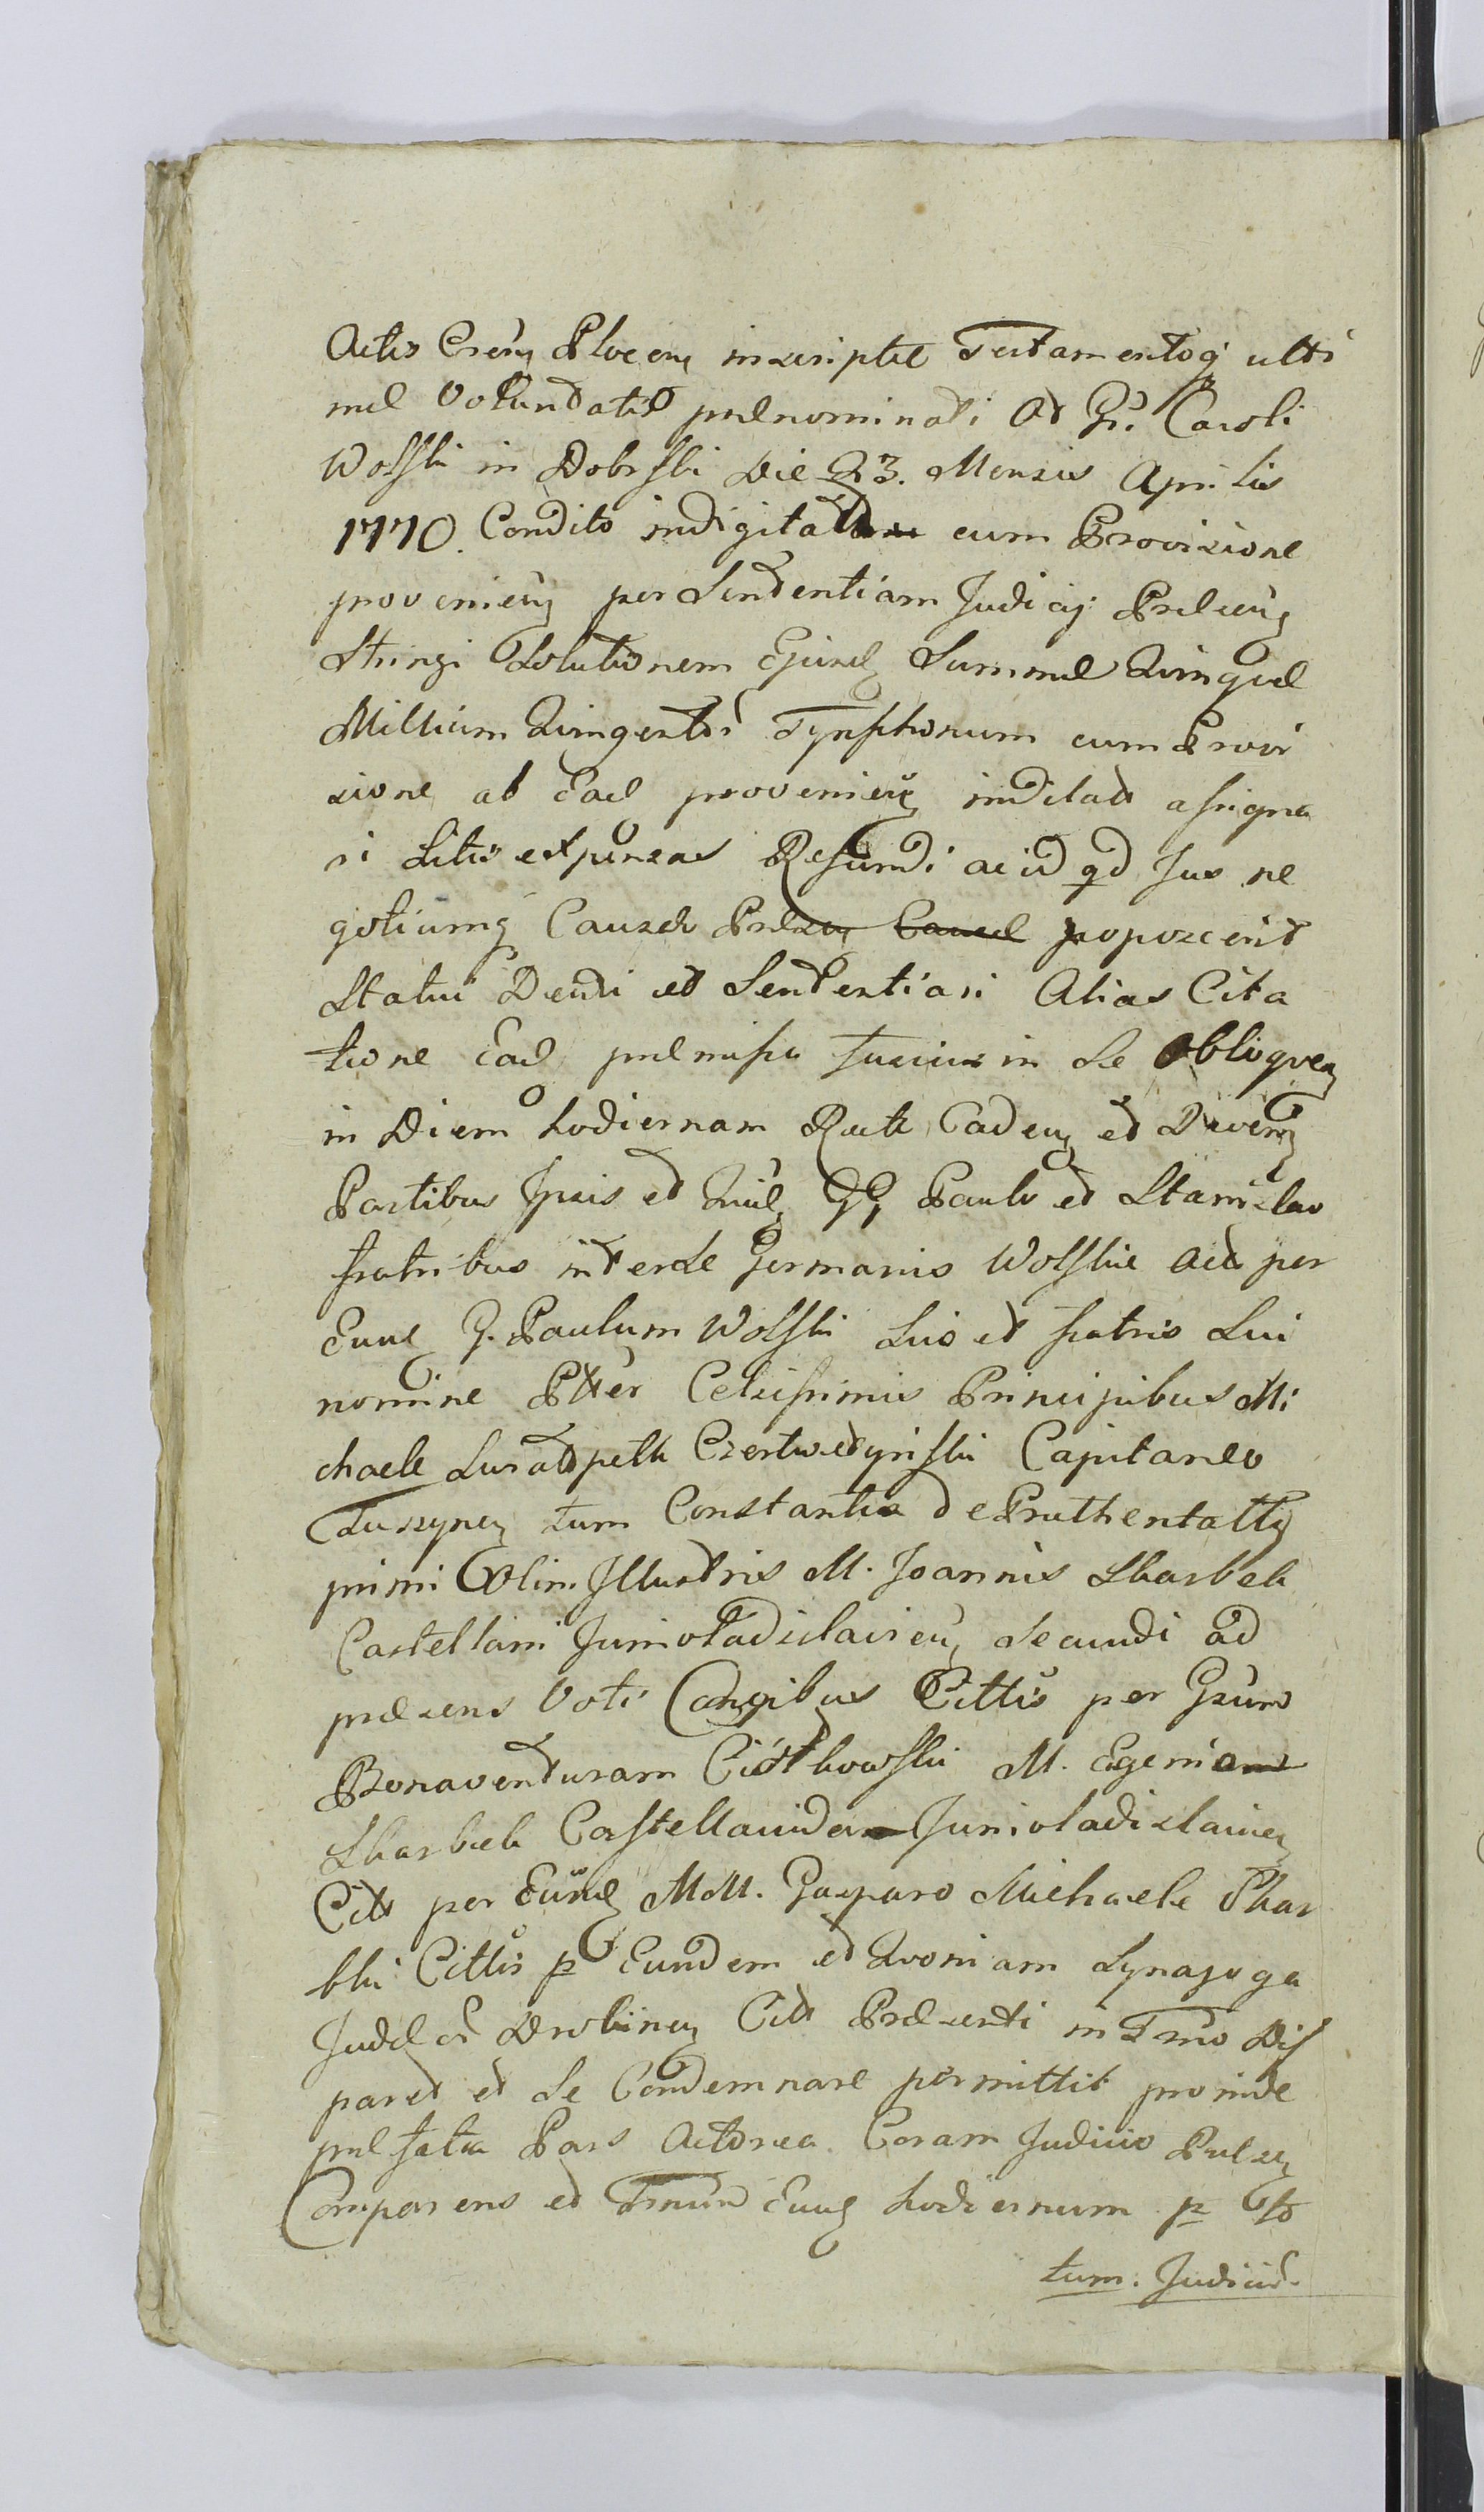 Actis Crëng Plocens inscriptæ Testamentoq ulti
mæ Voluntatis prænominati Ad Gñ. Caroli
Wolski in Dobrski Die 23. Mensis Aprilis
1770. Condito indigitatæ cum Provisione
provenieng per Sententiam Judicij Præseng
Stringi Solutionem Ejusd Summæ Quinque
Millium Quingentor Tynphonum cum Provi
sione ab Ead provenieng assigna
ri Litis expensas Refundi ac id qd Jus ne
gotiumq Causæ Præseng Causæ poposcerit
Statui Decidi et Sententiari Alias Cita
tione Ead præmissa fusius in Se Obloquen
in Diem hodiernam Rите Caden et Deveng
Partibus Ipsis et GG Paulo et Stanislao
fratribus interse Germanis Wolskie Act per
Eund G. Paulum Wolski Suo et fratris Sui
nomine Celsissimis Principibus Mi
chaele Swiatopelk Czertwertynski Capitaneo
tum Constantia de
primi Olim Illustris M. Joannis Skarbek
Castellani Junivladislavien, Secundi ad
præsens Voti Conjugibus Cittis per Gsum
Bonaventuram Ciolkowski M. Egeniam
Skarbek Castellanidam Junivladislavien
Citt per Eund MM. Gasparo Michaele Skar
bki Cittis p Eundem et Synagoga
Judæor Drobinen Citt Præsenti in Trno Dis
paret et Se Condemnare permittit proinde
præfata Pars Actorea Coram Judicio Præsen
Comparens et Trnum Eund hodiernum p
tum. Judiciū.